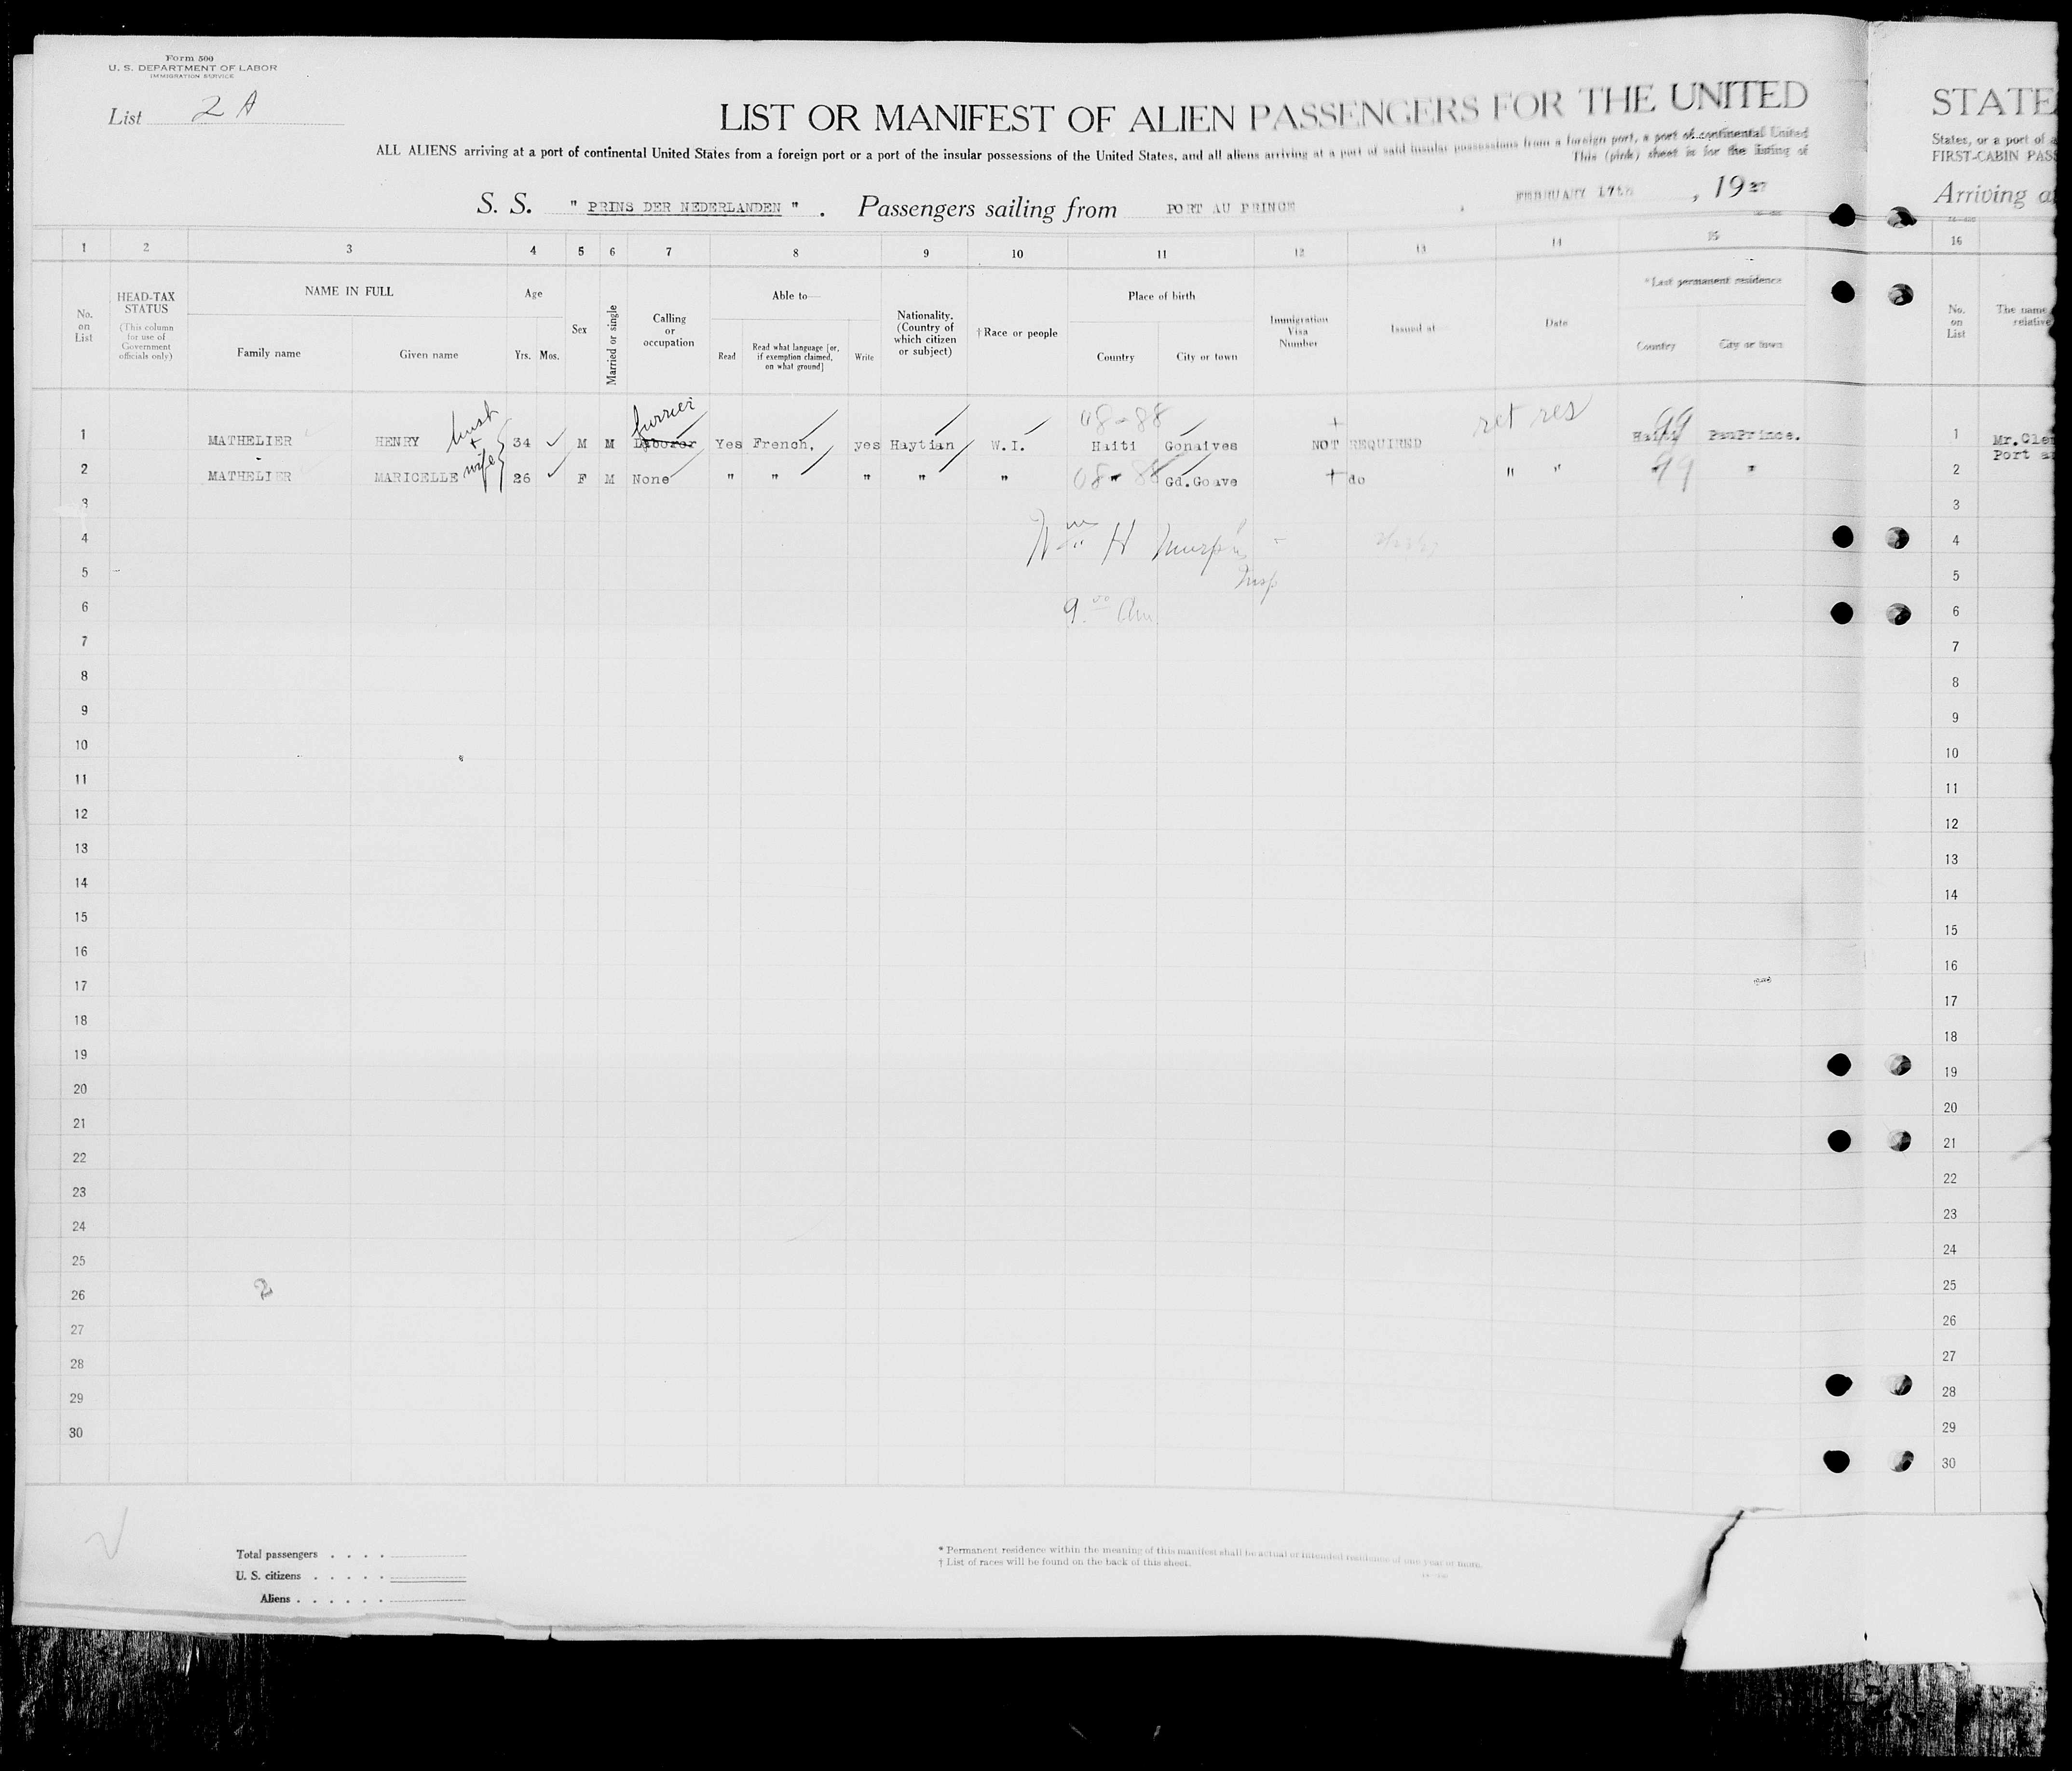 Form 500
U. S. DEPARTMENT OF LABOR
IMMIGRATION SERVICE
List 2 A
LIST OR MANIFEST OF ALIEN PASSENGERS FOR THE UNITED
STATE
ALL ALIENS arriving at a port of continental United States from a foreign port or a port of the insular possessions of the United States, and all aliens arriving at a port of said insular possessions from a foreign port, a port of continental United
States, or a port of a
This (pink) sheet is for the listing of
FIRST-CABIN PASS
S. S. " PRINS DER NEDERLANDEN " . Passengers sailing from PORT AU PRINCE , FEBRUARY 17th , 1927
Arriving a
1 2 3 4 5 6 7 8 9 10 11 12 13 14 15 16
No. on List
HEAD-TAX STATUS (This column for use of Government officials only)
NAME IN FULL
Family name Given name
Age
Yrs. Mos.
Sex
Married or single
Calling or occupation
Able to—
Read
Read what language [or, if exemption claimed, on what ground]
Write
Nationality. (Country of which citizen or subject)
†Race or people
Place of birth
Country City or town
Immigration Visa Number
Issued at
Date
*Last permanent residence
Country City or town
No. on List
The name
relative
hust + wife
furrier
08-88
+
ret res
99
1 MATHELIER HENRY 34 M M Laborer Yes French, yes Haytian W.I. Haiti Gonaives NOT REQUIRED Haiti PauPrince. 1 Mr.Cle
Port a
2 MATHELIER MARICELLE 26 F M None " " " " " 08-88 " Gd.Goave + do " " 99 " 2
3 3
4 Wm H Murphy 4
Insp
5 5
6 9.00 Am 6
7 7
8 8
9 9
10 10
11 11
12 12
13 13
14 14
15 15
16 16
17 17
18 18
19 19
20 20
21 21
22 22
23 23
24 24
25 25
26 2 26
27 27
28 28
29 29
30 30
Total passengers . . . .
U. S. citizens . . . . .
Aliens . . . . . .
* Permanent residence within the meaning of this manifest shall be actual or intended residence of one year or more.
† List of races will be found on the back of this sheet.